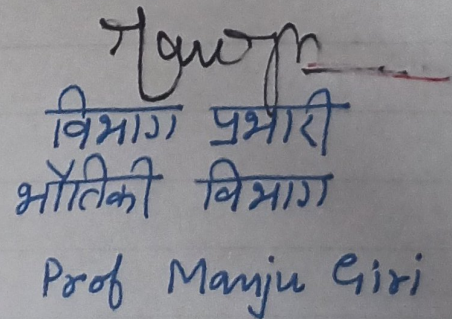 विभाग प्रभारी
भौतिकी विभाग
Prof Manju Giri